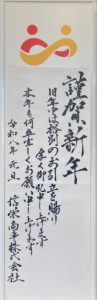 謹賀新年
旧年中は格別のお引立を賜り
厚く御礼申し上げます
本年も何卒宜しく
お願い申し上げます
令和八年元旦
信栄商事株式会社